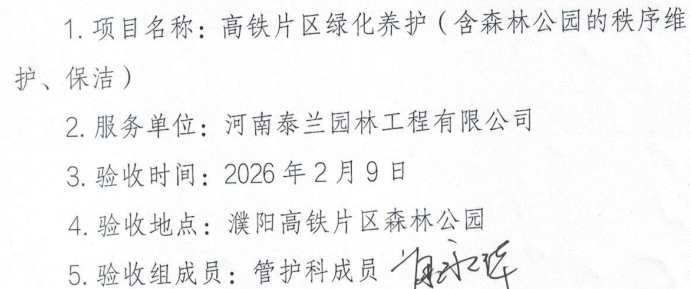 1. 项目名称：高铁片区绿化养护（含森林公园的秩序维
护、保洁）
2. 服务单位：河南泰兰园林工程有限公司
3. 验收时间：2026 年 2 月 9 日
4. 验收地点：濮阳高铁片区森林公园
5. 验收组成员：管护科成员